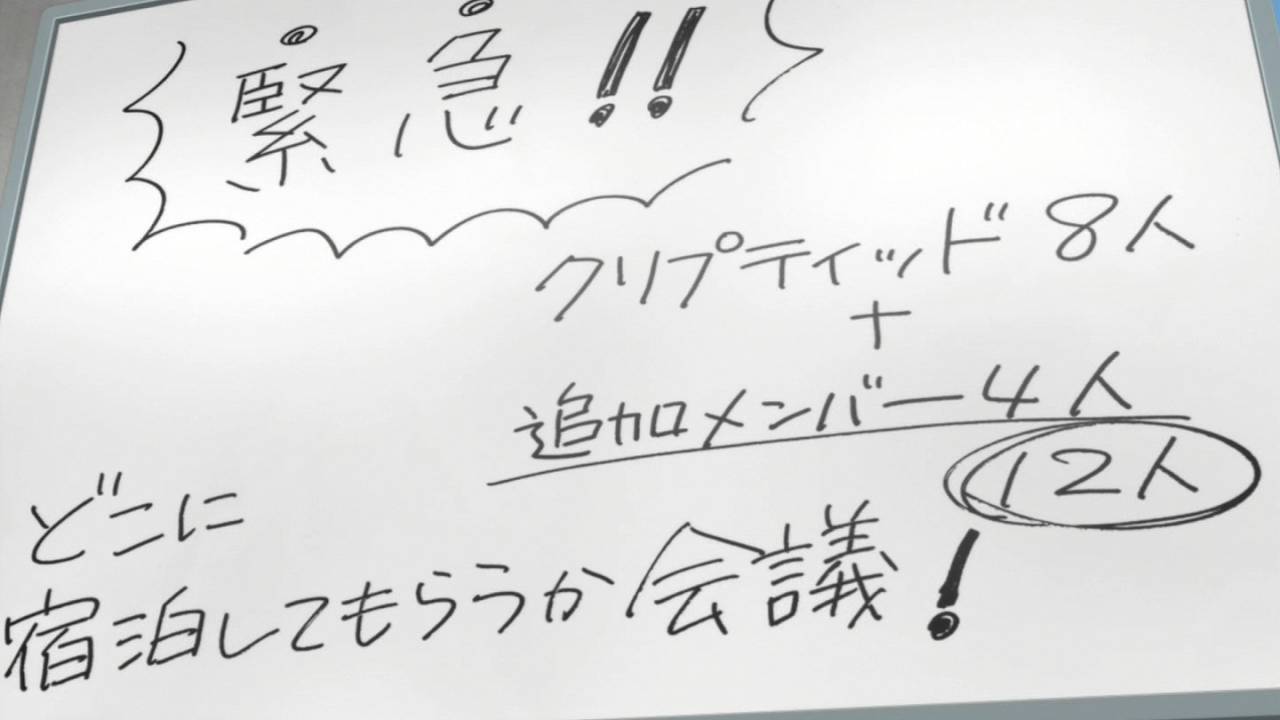 緊急!!
クリプティッド8人
+
追加メンバー4人
12人
どこに
宿泊してもらうか会議!